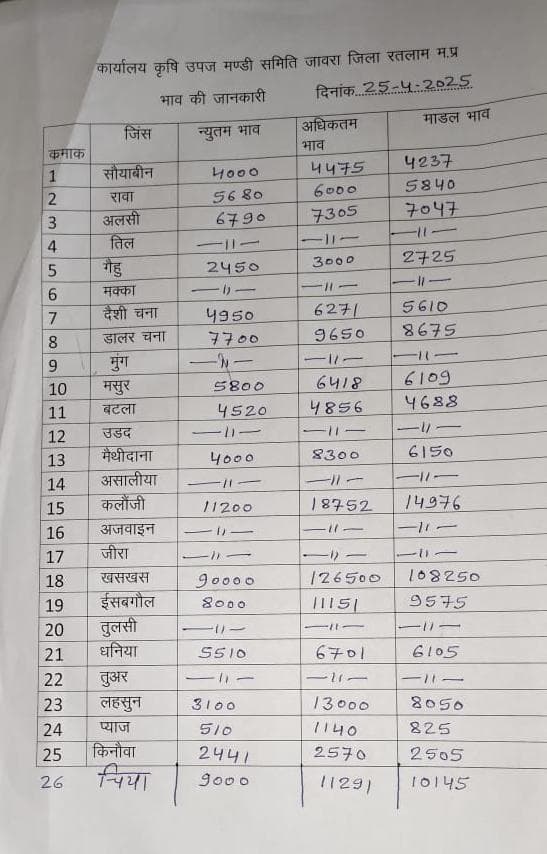 कार्यालय कृषि उपज मण्डी समिति जावरा जिला रतलाम म.प्र
भाव की जानकारी दिनांक..25-4-2025
कमाक जिंस न्युतम भाव अधिकतम भाव माडल भाव
1 सौयाबीन 4000 4475 4237
2 रावा 5680 6000 5840
3 अलसी 6790 7305 7047
4 तिल —11— —11— —11—
5 गैहु 2450 3000 2725
6 मक्का —11— —11— —11—
7 दैशी चना 4950 6271 5610
8 डालर चना 7700 9650 8675
9 मुंग —11— —11— —11—
10 मसुर 5800 6418 6109
11 बटला 4520 4856 4688
12 उडद —11— —11— —11—
13 मैथीदाना 4000 8300 6150
14 असालीया —11— —11— —11—
15 कलौंजी 11200 18752 14976
16 अजवाइन —11— —11— —11—
17 जीरा —11— —11— —11—
18 खसखस 90000 126500 108250
19 ईसबगौल 8000 11151 9575
20 तुलसी —11— —11— —11—
21 धनिया 5510 6701 6105
22 तुअर —11— —11— —11—
23 लहसुन 3100 13000 8050
24 प्याज 510 1140 825
25 किनौवा 2441 2570 2505
26 चिया 9000 11291 10145